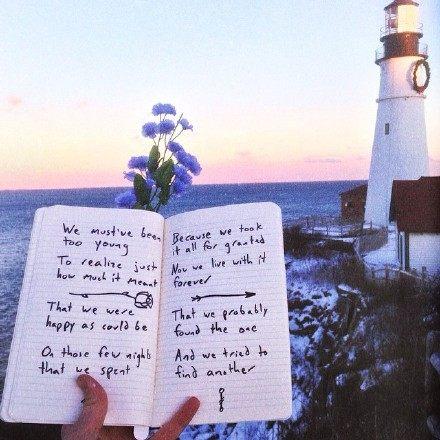 We must've been
too young
To realize just
how much it meant
That we were
happy as could be
On those few nights
that we spent
Because we took
it all for granted
Now we live with it
forever
That we probably
found the one
And we tried to
find another